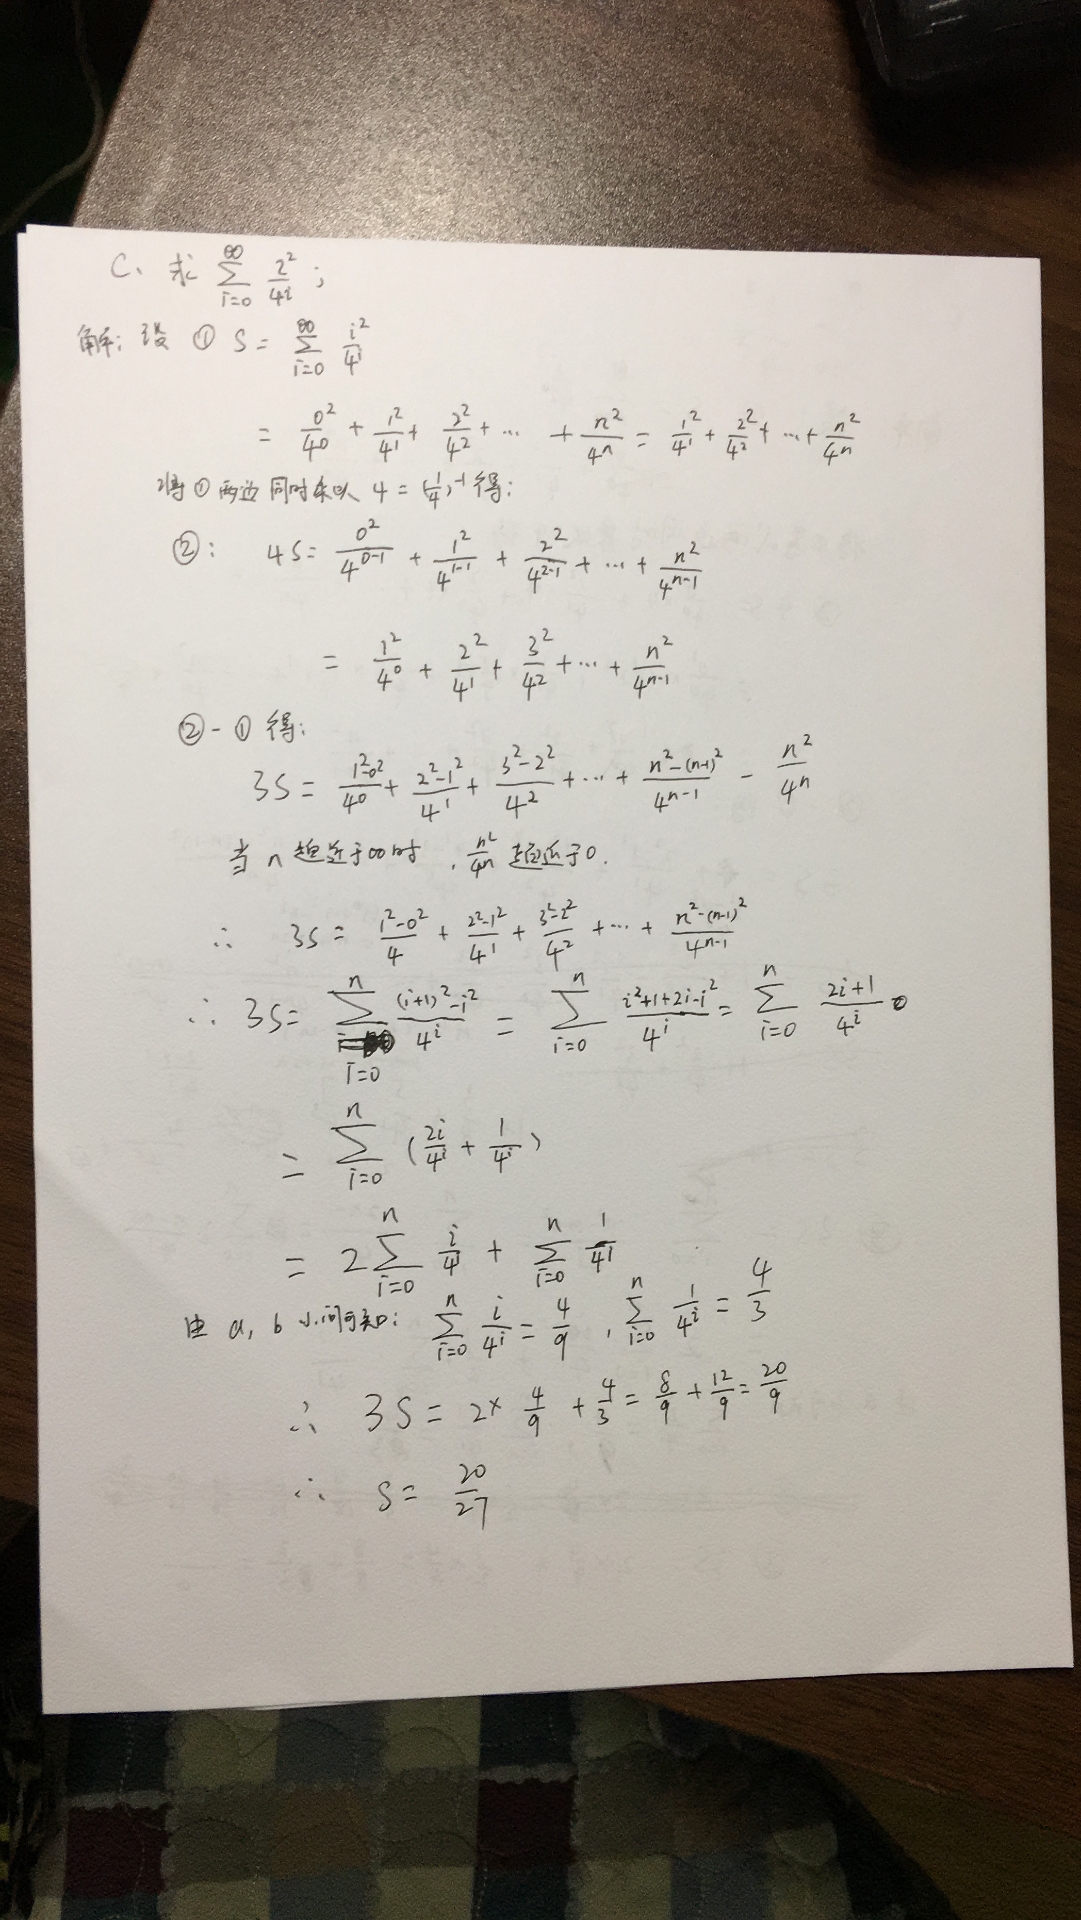 C、求 ∑_{i=0}^{∞} 2²/4^i ;
解: 设 ① S = ∑_{i=0}^{∞} i²/4^i
= 0²/4⁰ + 1²/4¹ + 2²/4² + … + n²/4ⁿ = 1²/4¹ + 2²/4² + … + n²/4ⁿ
将①两边同时乘以 4 = (1/4)⁻¹ 得:
②: 4S = 0²/4^{0-1} + 1²/4^{1-1} + 2²/4^{2-1} + … + n²/4^{n-1}
= 1²/4⁰ + 2²/4¹ + 3²/4² + … + n²/4^{n-1}
② - ① 得:
3S = (1²-0²)/4⁰ + (2²-1²)/4¹ + (3²-2²)/4² + … + (n²-(n-1)²)/4^{n-1} - n²/4ⁿ
当 n 趋近于∞时 , n²/4ⁿ 趋近于0.
∴ 3S = (1²-0²)/4 + (2²-1²)/4¹ + (3²-2²)/4² + … + (n²-(n-1)²)/4^{n-1}
∴ 3S = ∑_{i=0}^{n} ((i+1)²-i²)/4^i = ∑_{i=0}^{n} (i²+1+2i-i²)/4^i = ∑_{i=0}^{n} (2i+1)/4^i
= ∑_{i=0}^{n} (2i/4^i + 1/4^i)
= 2∑_{i=0}^{n} i/4^i + ∑_{i=0}^{n} 1/4^i
由 a, b 小问可知: ∑_{i=0}^{n} i/4^i = 4/9 , ∑_{i=0}^{n} 1/4^i = 4/3
∴ 3S = 2× 4/9 + 4/3 = 8/9 + 12/9 = 20/9
∴ S = 20/27